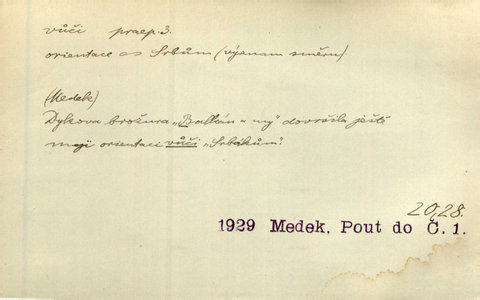 vůči praep. 3.
orientace Srbům (význam směru)
(Medek)
Dykova brožura „Balkán a my" dovršila ještě
moji orientaci vůči „Srbákům".
20,28.
1929 Medek, Pout do Č. 1.